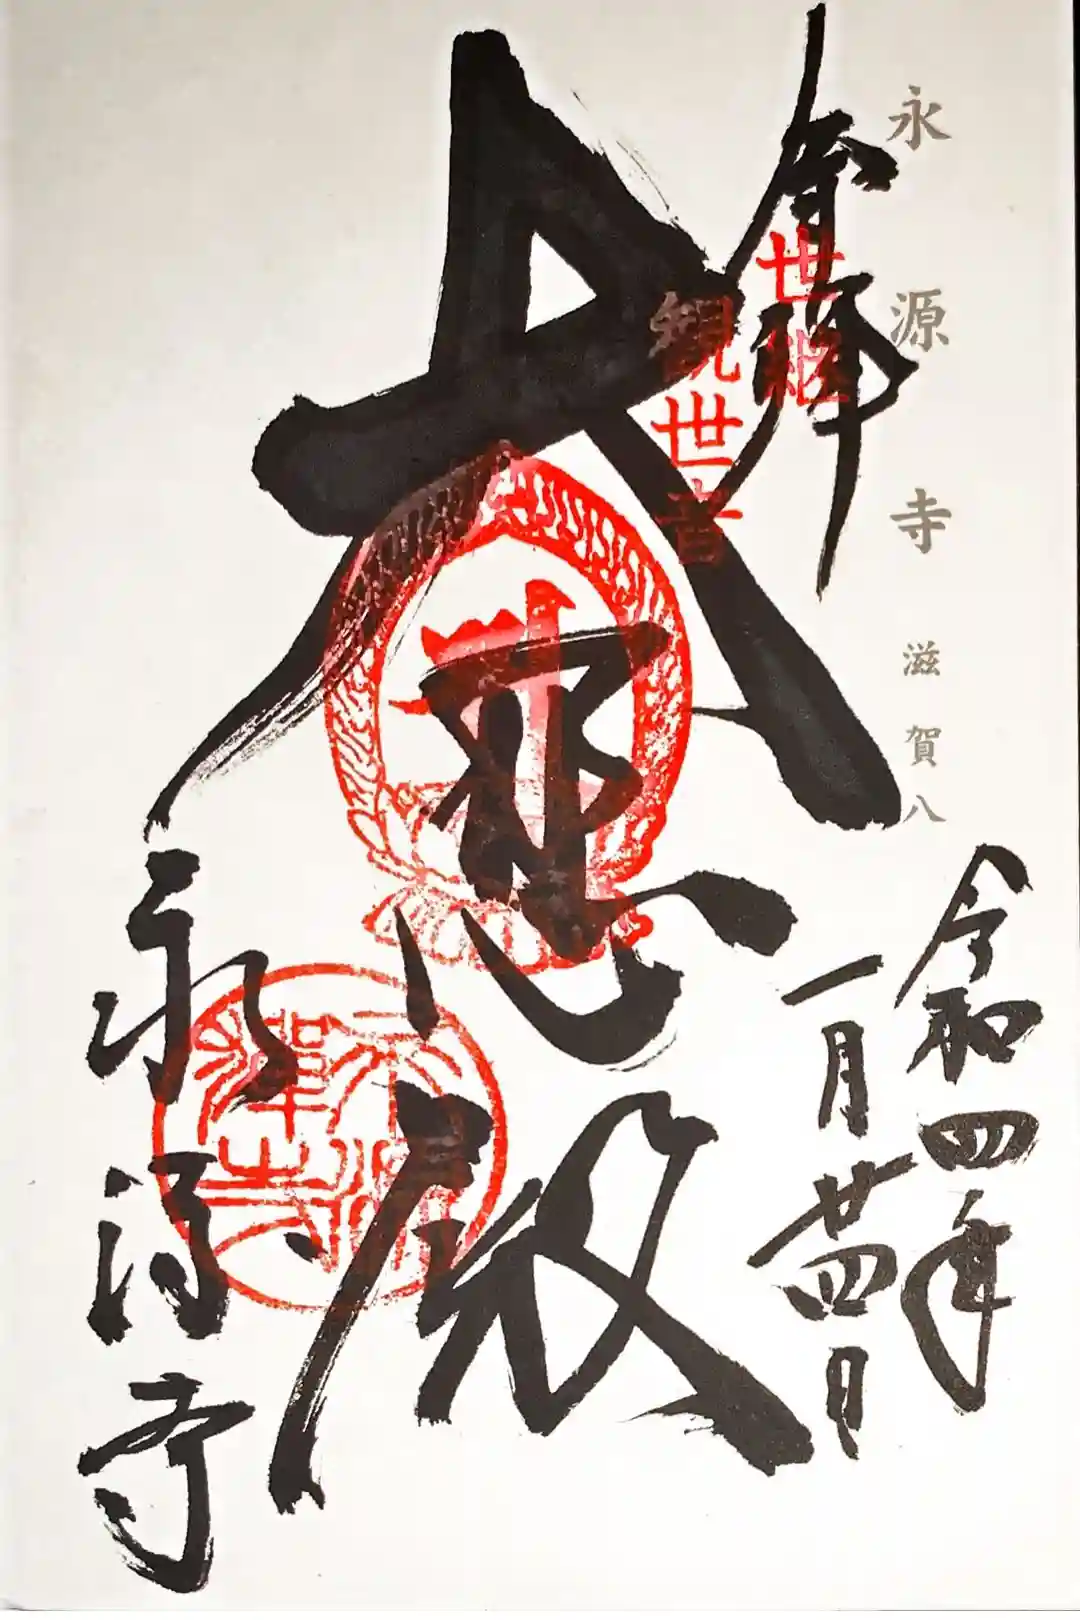 永源寺 滋賀八
奉拝
世継
観世音
大悲殿
令和四年
一月廿四日
永源寺